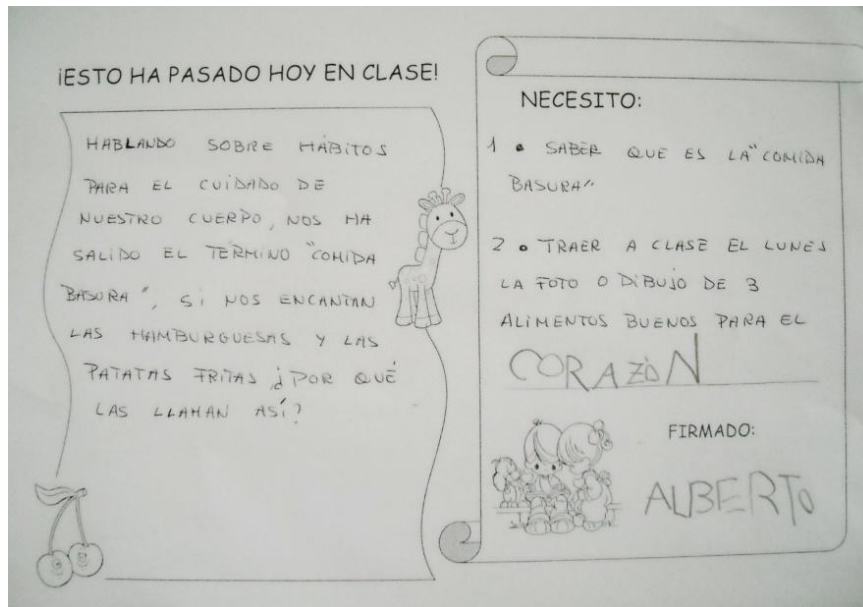 ¡ESTO HA PASADO HOY EN CLASE!
HABLANDO SOBRE HÁBITOS
PARA EL CUIDADO DE
NUESTRO CUERPO, NOS HA
SALIDO EL TÉRMINO "COMIDA
BASURA", SI NOS ENCANTAN
LAS HAMBURGUESAS Y LAS
PATATAS FRITAS ¿POR QUÉ
LAS LLAMAN ASÍ?
NECESITO:
1 • SABER QUE ES LA "COMIDA
BASURA"
2 • TRAER A CLASE EL LUNES
LA FOTO O DIBUJO DE 3
ALIMENTOS BUENOS PARA EL
CORAZÓN
FIRMADO:
ALBERTO